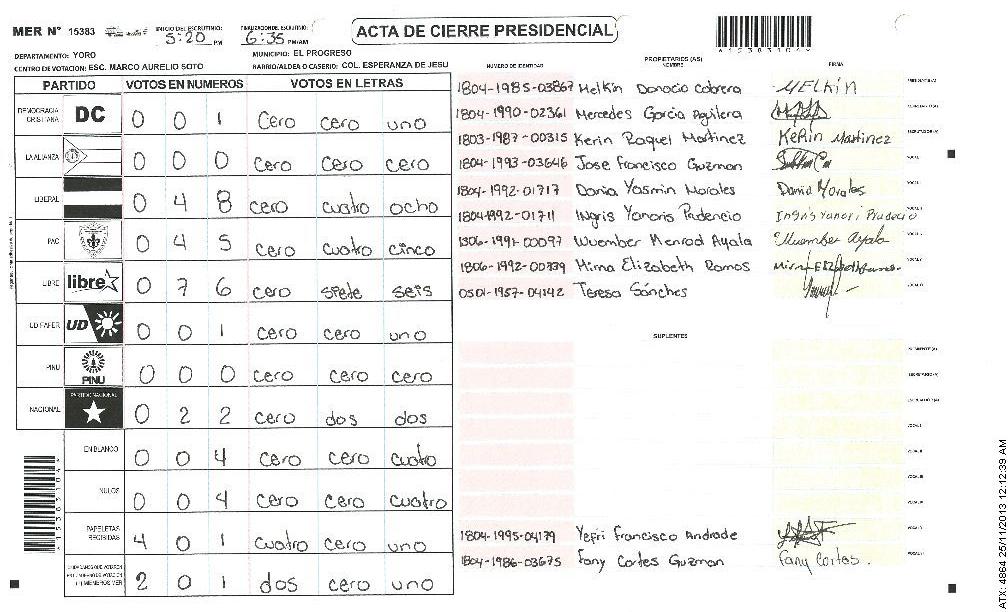 MER N° 15383 INICIO DEL ESCRUTINIO: 5:20 PM FINALIZACION DEL ESCRUTINIO: 6:35 PM/AM ACTA DE CIERRE PRESIDENCIAL
DEPARTAMENTO: YORO MUNICIPIO: EL PROGRESO
CENTRO DE VOTACION: ESC. MARCO AURELIO SOTO BARRIO/ALDEA O CASERIO: COL. ESPERANZA DE JESU
PARTIDO VOTOS EN NUMEROS VOTOS EN LETRAS
DEMOCRACIA CRISTIANA DC 0 0 1 cero cero uno
LA ALIANZA 0 0 0 cero cero cero
LIBERAL 0 4 8 cero cuatro ocho
PAC 0 4 5 cero cuatro cinco
LIBRE libre 0 7 6 cero siete seis
UD FAPER UD 0 0 1 cero cero uno
PINU PINU 0 0 0 cero cero cero
NACIONAL PARTIDO NACIONAL 0 2 2 cero dos dos
EN BLANCO 0 0 4 cero cero cuatro
NULOS 0 0 4 cero cero cuatro
PAPELETAS RECIBIDAS 4 0 1 cuatro cero uno
CIUDADANOS QUE VOTARON 2 0 1 dos cero uno
NUMERO DE IDENTIDAD PROPIETARIOS (AS) NOMBRE FIRMA
1804-1985-03867 Melkin Donocio Cabrera MELKIN
1804-1990-02361 Mercedes Garcia Aguilera
1803-1987-00315 Kerin Raquel Martinez Kerin Martinez
1804-1993-03646 Jose Francisco Guzman
1804-1992-01717 Dania Yasmin Morales Dania Morales
1804-1992-01711 Ingris Yanoris Prudencio Ingris Yanori Prudecio
1306-1991-00097 Wuember Menrod Ayala Wuember Ayala
1806-1992-00339 Mirna Elizabeth Ramos
0501-1957-04142 Teresa Sánches
SUPLENTES
1804-1995-04179 Yefri Francisco Andrade
1804-1986-03675 Fany Cortes Guzman Fany Cortes.
ATX: 4864 25/11/2013 12:12:39 AM